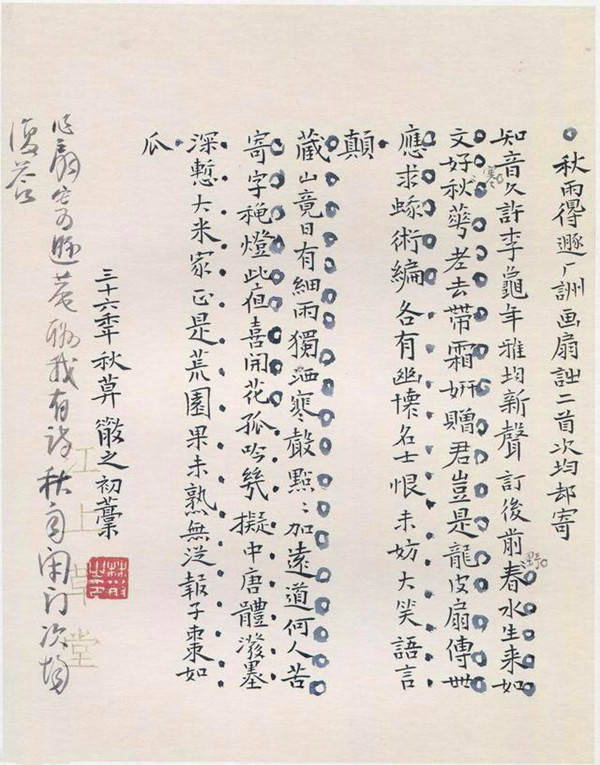 秋雨得遯厂詶画扇詩二首次均却寄
知音久許李龜年雅均新聲訂後前春水生来如
文好秋華老去帶霜妍贈君豈是龍皮扇傳世
應求蝝術編各有幽懷名士恨未妨大笑語言
顛
藏山竟日有細雨獨洒寒聲點〻加遠道何人苦
寄字穐燈此夜喜開花孤吟幾擬中唐體潑墨
深慙大米家正是荒園果未熟無從報子棗如
瓜
三十六年秋 散之初藁
遯菴 我有詩秋雨閉門次均
復荅
江上草堂